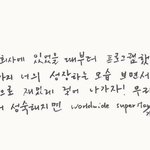 회사에 있었을 때부터 프로그램할
까지 너의 성장하는 모습 보면서
으로 재밌게 걸어 나가자! 우리
서 성숙해지면 worldwide superstar